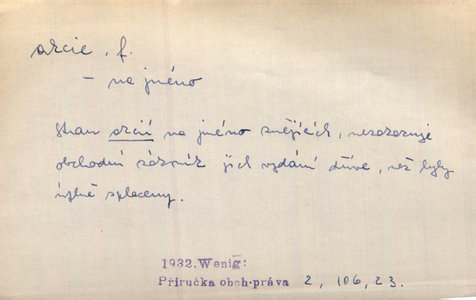 akcie, f.
– na jméno
akcií na jméno znějících, nezakazuje
obchodní zákoník jich vydání dříve, než byly
úplně splaceny.
1932. Wenig:
Příručka obch·práva 2, 106, 23.